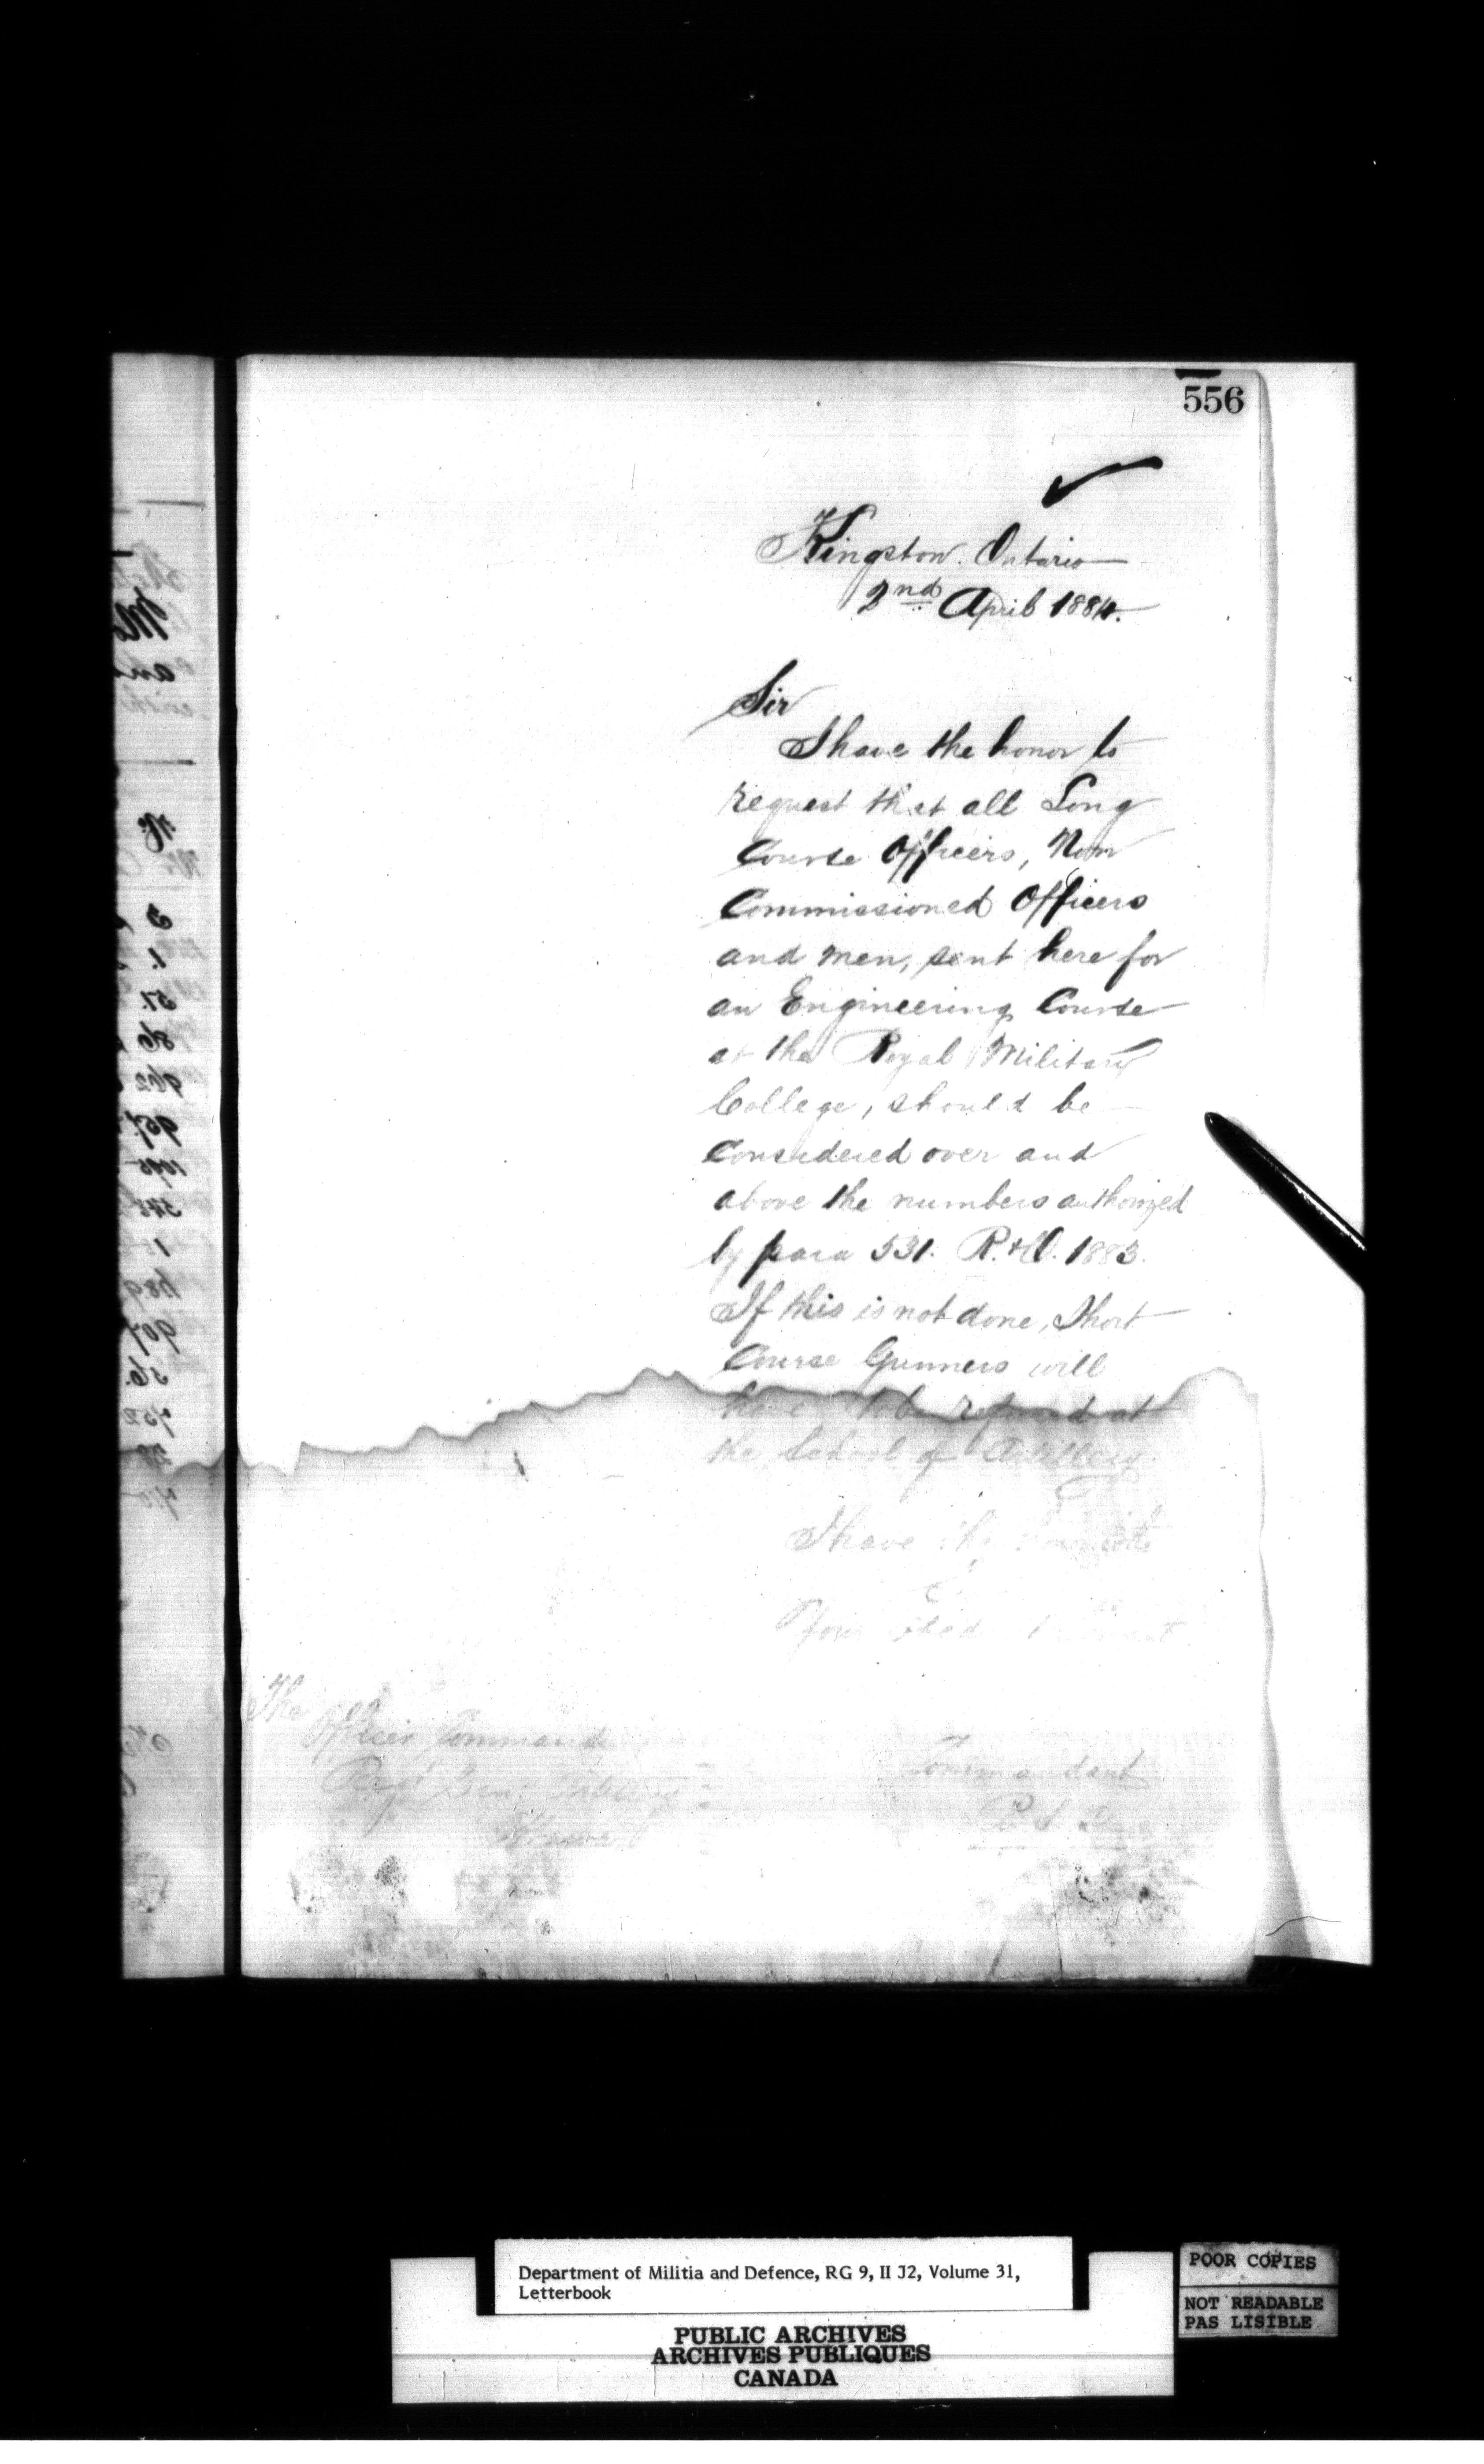 556
Kingston. Ontario
2nd April 1884.
Sir
I have the honor to
request that all Long
Course Officers, Non
Commissioned Officers
and men, sent here for
an Engineering Course
at the Royal Military
College, should be
considered over and
above the numbers authorized
by para 531. R.&O. 1883.
If this is not done, Short
Course Gunners will
have to be refused at
the School of Artillery.
I have the
obed
The
Officer Command
Commandant
Department of Militia and Defence, RG 9, II J2, Volume 31,
Letterbook
PUBLIC ARCHIVES
ARCHIVES PUBLIQUES
CANADA
POOR COPIES
NOT READABLE
PAS LISIBLE